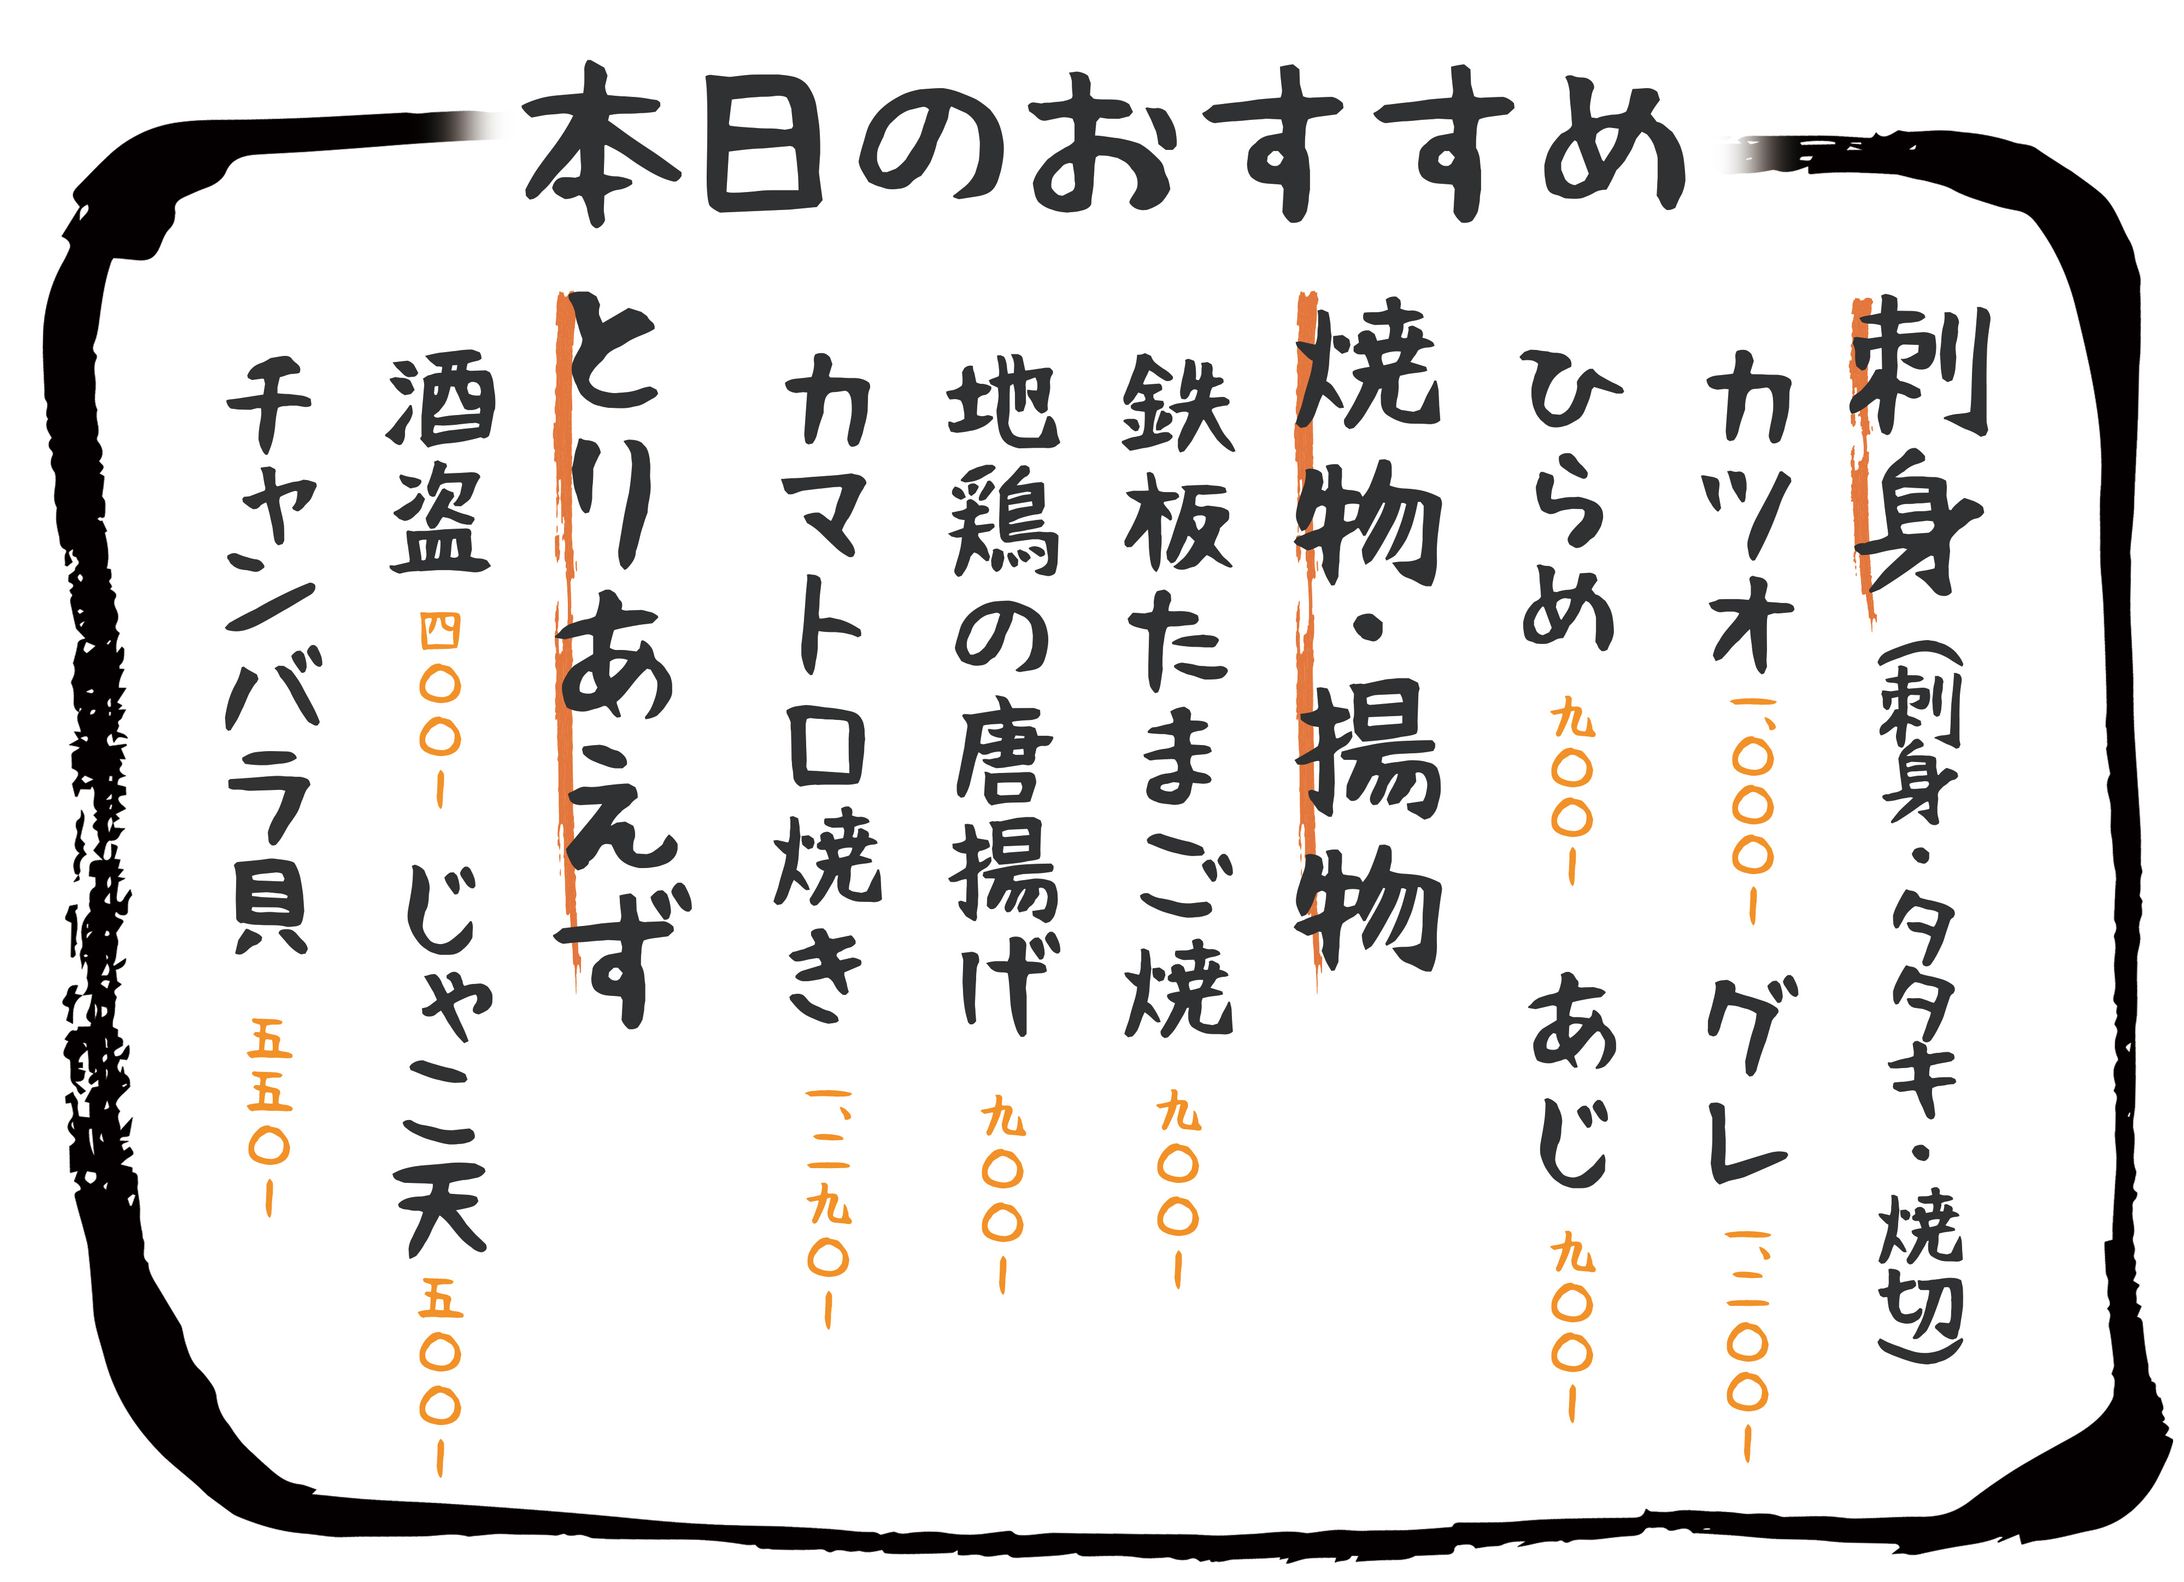 本日のおすすめ
刺身(刺身・タタキ・焼切)
カツオ 一、〇〇〇ー グレ 一、二〇〇ー
ひらめ 九〇〇ー あじ 九〇〇ー
焼物・揚物
鉄板たまご焼 九〇〇ー
地鶏の唐揚げ 九〇〇ー
カマトロ焼き 一、二九〇ー
とりあえず
酒盗 四〇〇ー じゃこ天 五〇〇ー
チャンバラ貝 五五〇ー